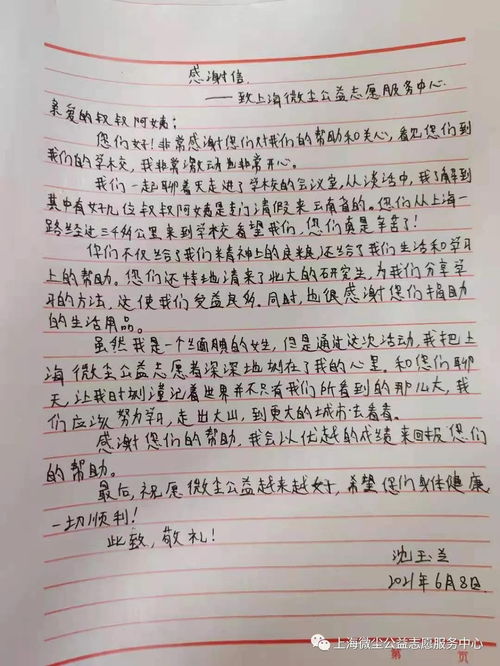 感谢信
——致上海微尘公益志愿服务中心
亲爱的叔叔阿姨:
您们好!非常感谢您们对我们的帮助和关心,看见您们到
我们的学校,我非常激动也非常开心。
我们一起聊着天走进了学校的会议室,从谈话中,我了解到
其中有好几位叔叔阿姨是专门请假来云南省的。您们从上海一
路经过三千多公里来到学校看望我们,您们真是辛苦了!
你们不仅给了我们精神上的良粮,还给了我们生活和学习
上的帮助。您们还特地请来了北大的研究生,为我们分享学
习的方法,这使我们受益良多。同时,也很感谢您们捐助
的生活用品。
虽然我是一个腼腆的女生,但是通过这次活动,我把上
海微尘公益志愿者深深地刻在了我的心里。和您们聊
天,让我时刻谨记着世界并不只有我们所看到的那么大,我
们应该努力学习,走出大山,到更大的城市去看看。
感谢您们的帮助,我会以优越的成绩来回报您们
的帮助。
最后,祝愿微尘公益越来越好,希望您们身体健康
一切顺利!
此致,敬礼!
沈玉兰
2021年6月8日
上海微尘公益志愿服务中心
第 页